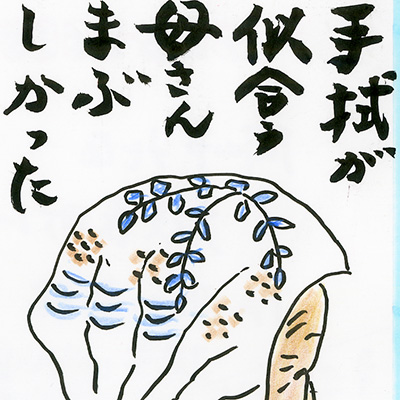 手拭が
似合う
母さん
まぶ
しかった